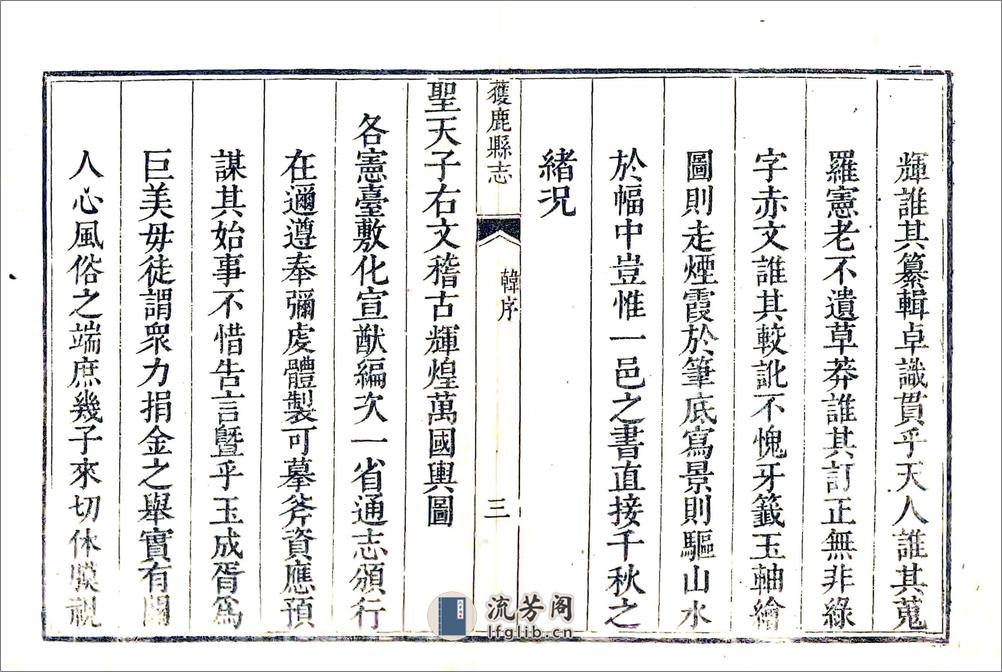 輝誰其纂輯卓識貫乎天人誰其蒐
羅憲老不遺草莽誰其訂正無非綠
字赤文誰其較訛不愧牙籤玉軸繪
圖則走煙霞於筆底寫景則驅山水
於幅中豈惟一邑之書直接千秋之
緒況
獲鹿縣志
韓序
三
聖天子右文稽古輝煌萬國輿圖
各憲臺敷化宣猷編次一省通志頒行
在邇遵奉彌虔體製可摹斧資應預
謀其始事不惜告言曁乎玉成胥爲
巨美毋徒謂衆力捐金之舉實有關
人心風俗之端庶幾子來切休膜視
流芳阁
lfglib.cn